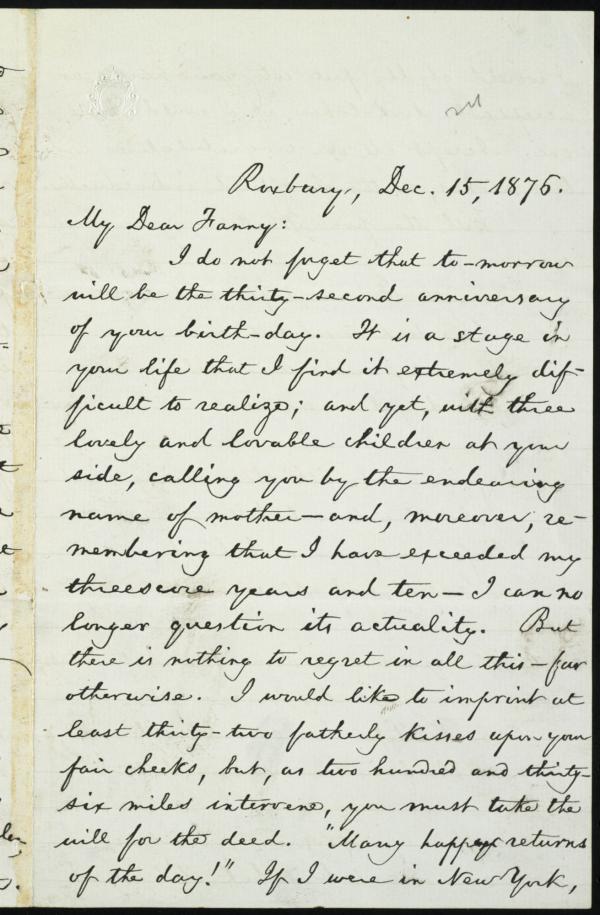 Roxbury, Dec. 15, 1876.
My Dear Fanny:
I do not forget that to-morrow
will be the thirty-second anniversary
of your birth-day. It is a stage in
your life that I find it extremely dif-
ficult to realize; and yet, with three
lovely and lovable children at your
side, calling you by the endearing
name of mother—and, moreover, re-
membering that I have exceeded my
threescore years and ten—I can no
longer question its actuality. But
there is nothing to regret in all this—far
otherwise. I would like to imprint at
least thirty-two fatherly kisses upon your
fair cheeks, but, as two hundred and thirty-
six miles intervene, you must take the
will for the deed. "Many happy returns
of the day!" If I were in New York,